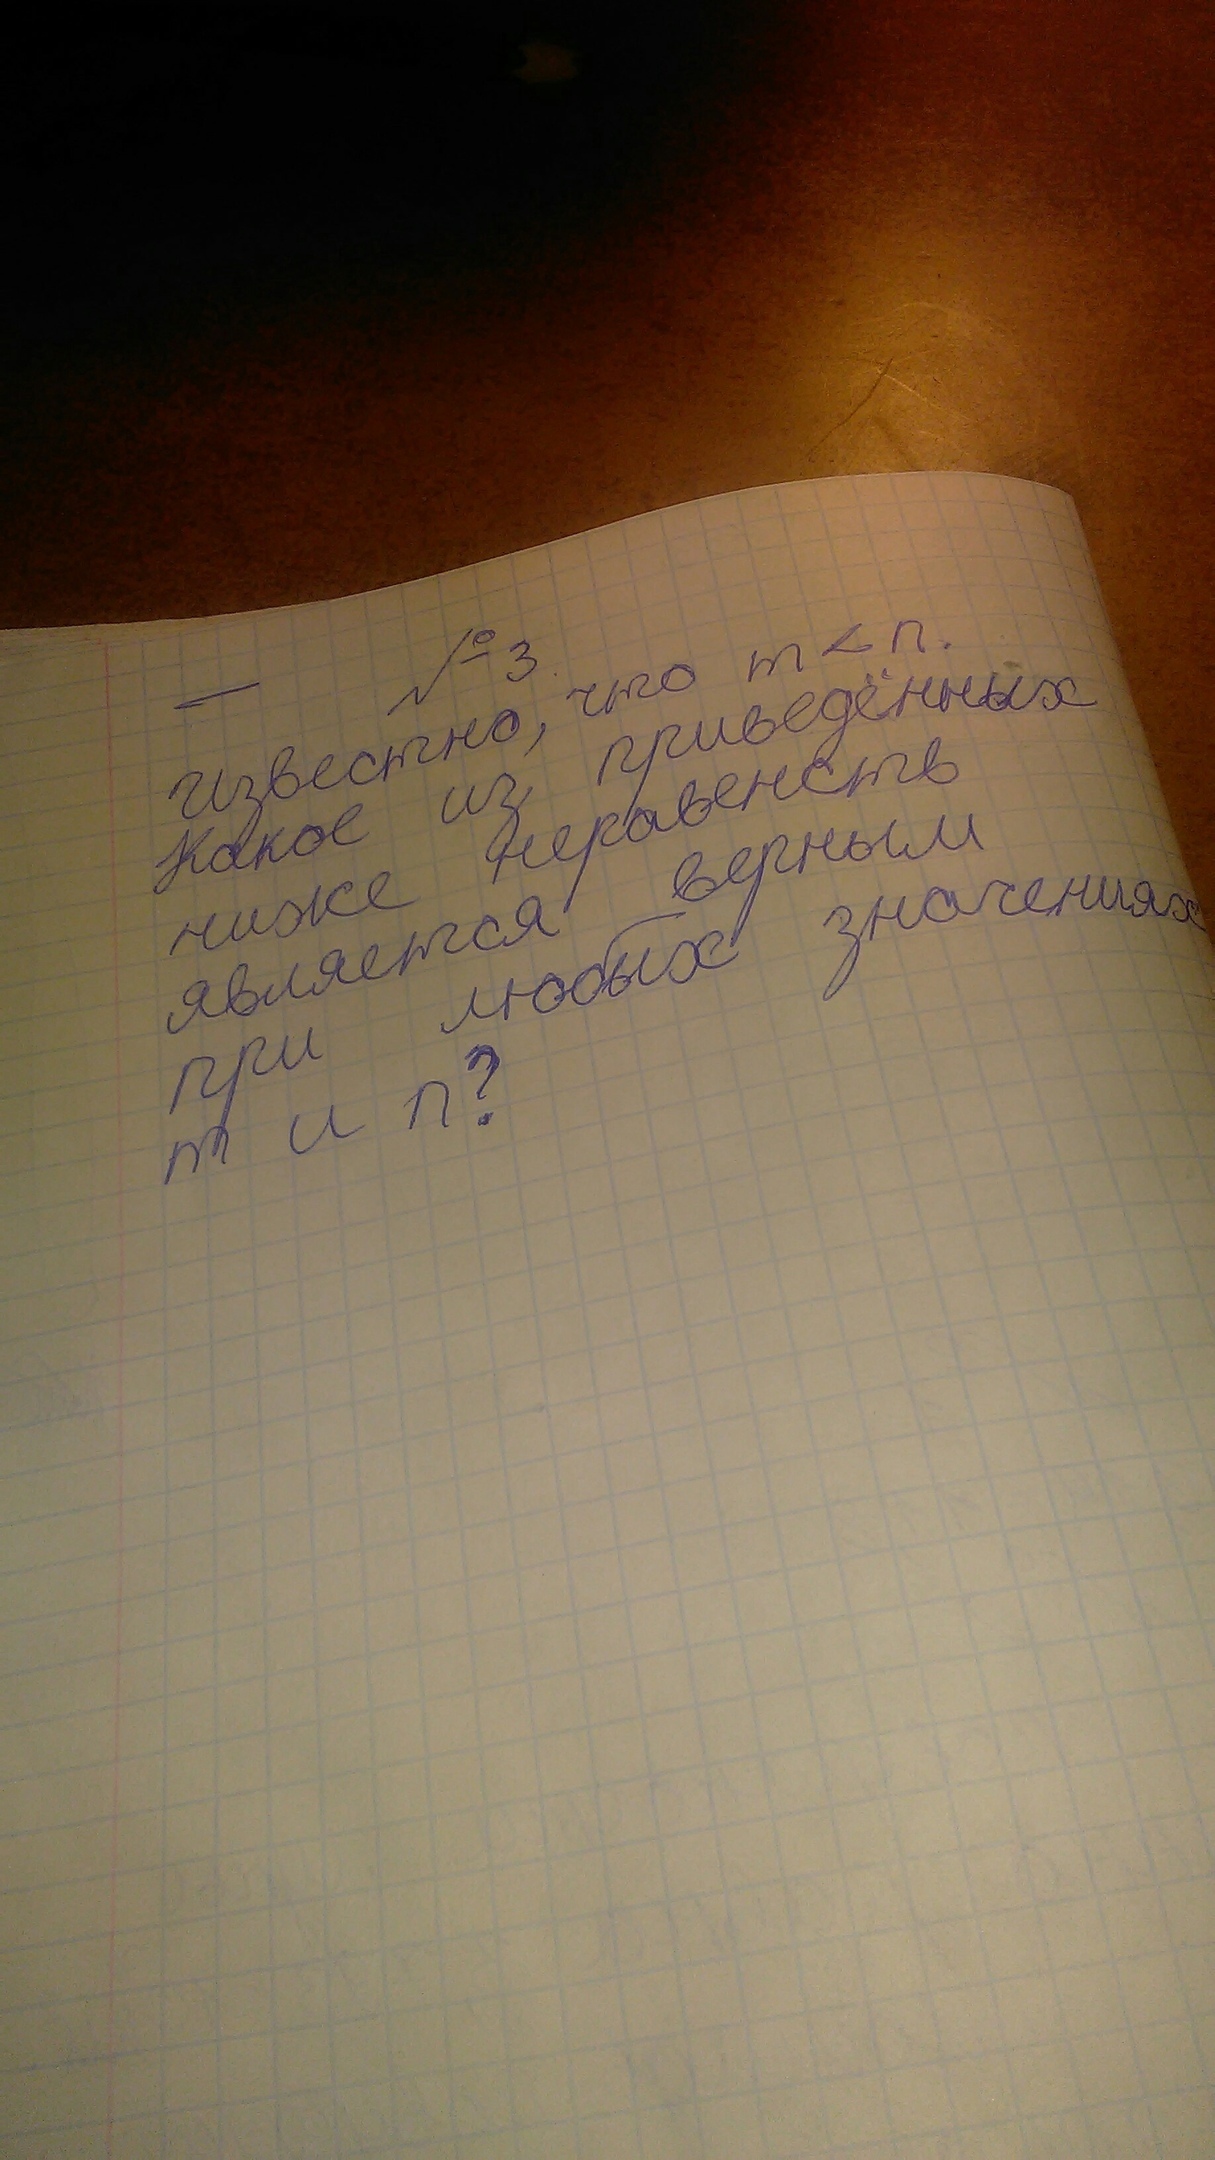 №3
Известно, что m < n.
Какое из приведённых
ниже неравенств
является верным
при любых значениях
m и n?